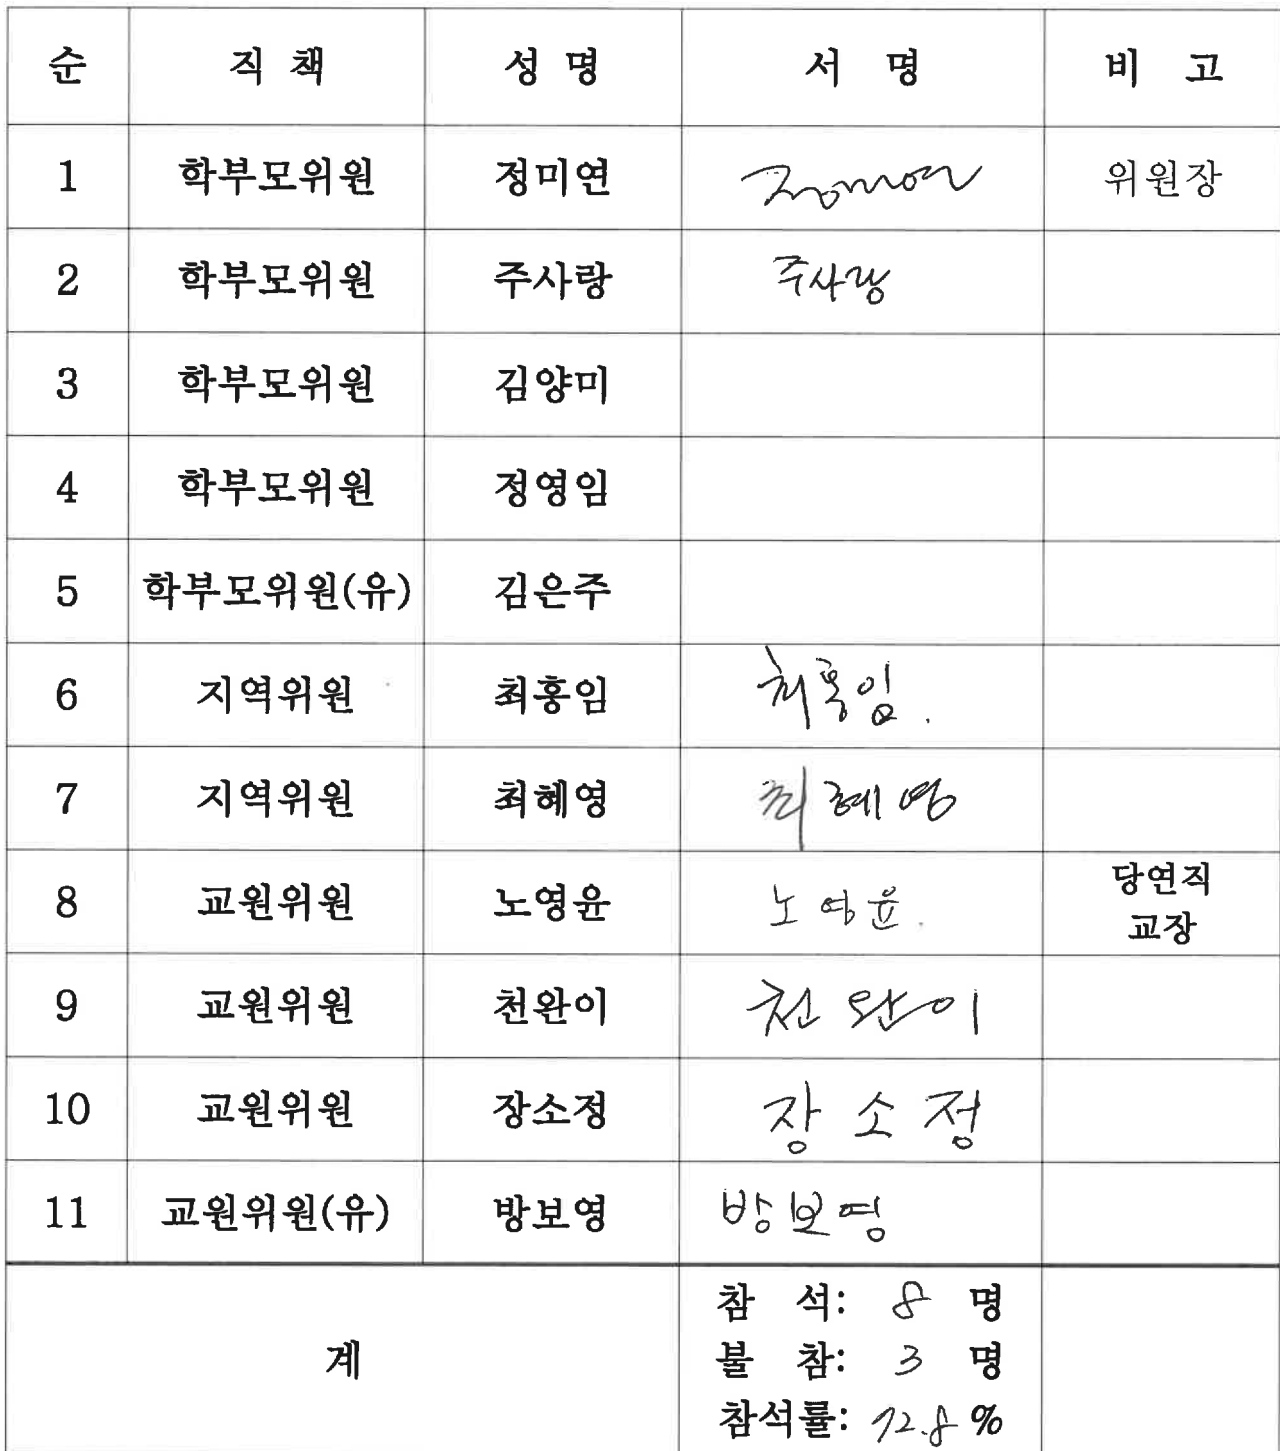 순 직 책 성 명 서 명 비 고
1 학부모위원 정미연 정미연 위원장
2 학부모위원 주사랑 주사랑
3 학부모위원 김양미
4 학부모위원 정영임
5 학부모위원(유) 김은주
6 지역위원 최홍임 최홍임.
7 지역위원 최혜영 최혜영
8 교원위원 노영윤 노영윤. 당연직
교장
9 교원위원 천완이 천완이
10 교원위원 장소정 장소정
11 교원위원(유) 방보영 방보영
계
참 석: 8 명
불 참: 3 명
참석률: 72.8 %